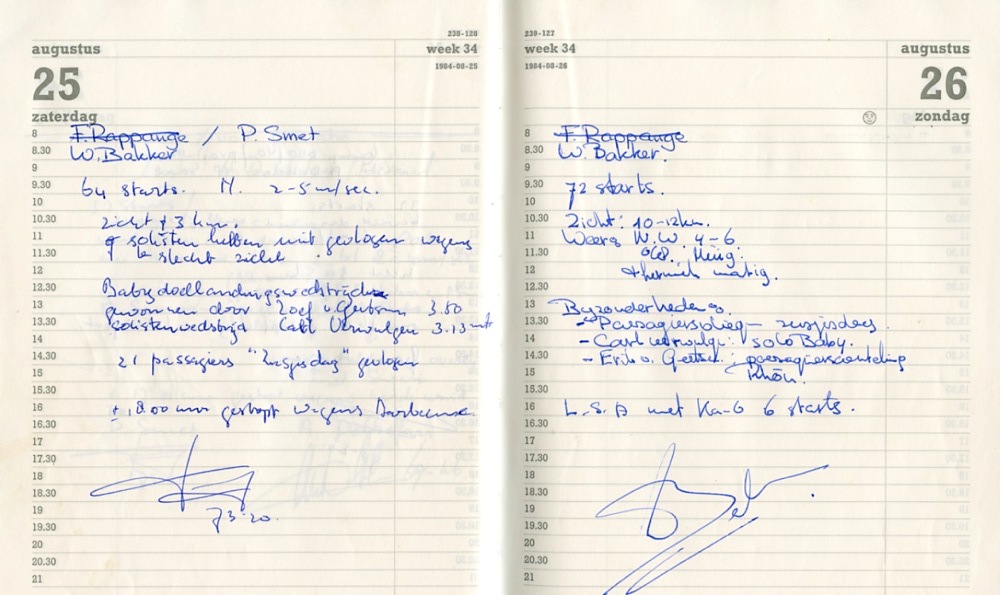 238-128
augustus
week 34
25
1984-08-25
zaterdag
8 F. Rappange / P. Smet
8.30 W. Bakker
9
9.30 64 starts. N. 2-5 m/sec.
10
10.30 zicht ± 3 km.
11 solisten hebben niet gevlogen wegens
11.30 te slecht zicht.
12
12.30 Babydoellandingswedstrijden
13 gewonnen door 3.80
13.30 solistenwedstrijd Carl Verwulgen 3.13 mtr
14
14.30 21 passagiers "zusjesdag" gevlogen
15
15.30
16 ± 18.00 uur gestopt wegens Barbecue
16.30
17
17.30
18
18.30
19
19.30
20
20.30
21
239-127
week 34
augustus
1984-08-26
26
zondag
8 F. Rappange
8.30 W. Bakker.
9
9.30 72 starts.
10
10.30 Zicht: 10-12 km.
11 N.W. 4-6.
11.30
12 thermiek matig.
12.30
13 Byzonderheden
13.30 - Passagiersvliegen zusjesdag.
14 - Carl Verwulgen: solo Baby.
14.30 - Erik v. passagiersaantekening
15 Rhön.
15.30
16 L.S.A met Ka-6 6 starts.
16.30
17
17.30
18
18.30
19
19.30
20
20.30
21